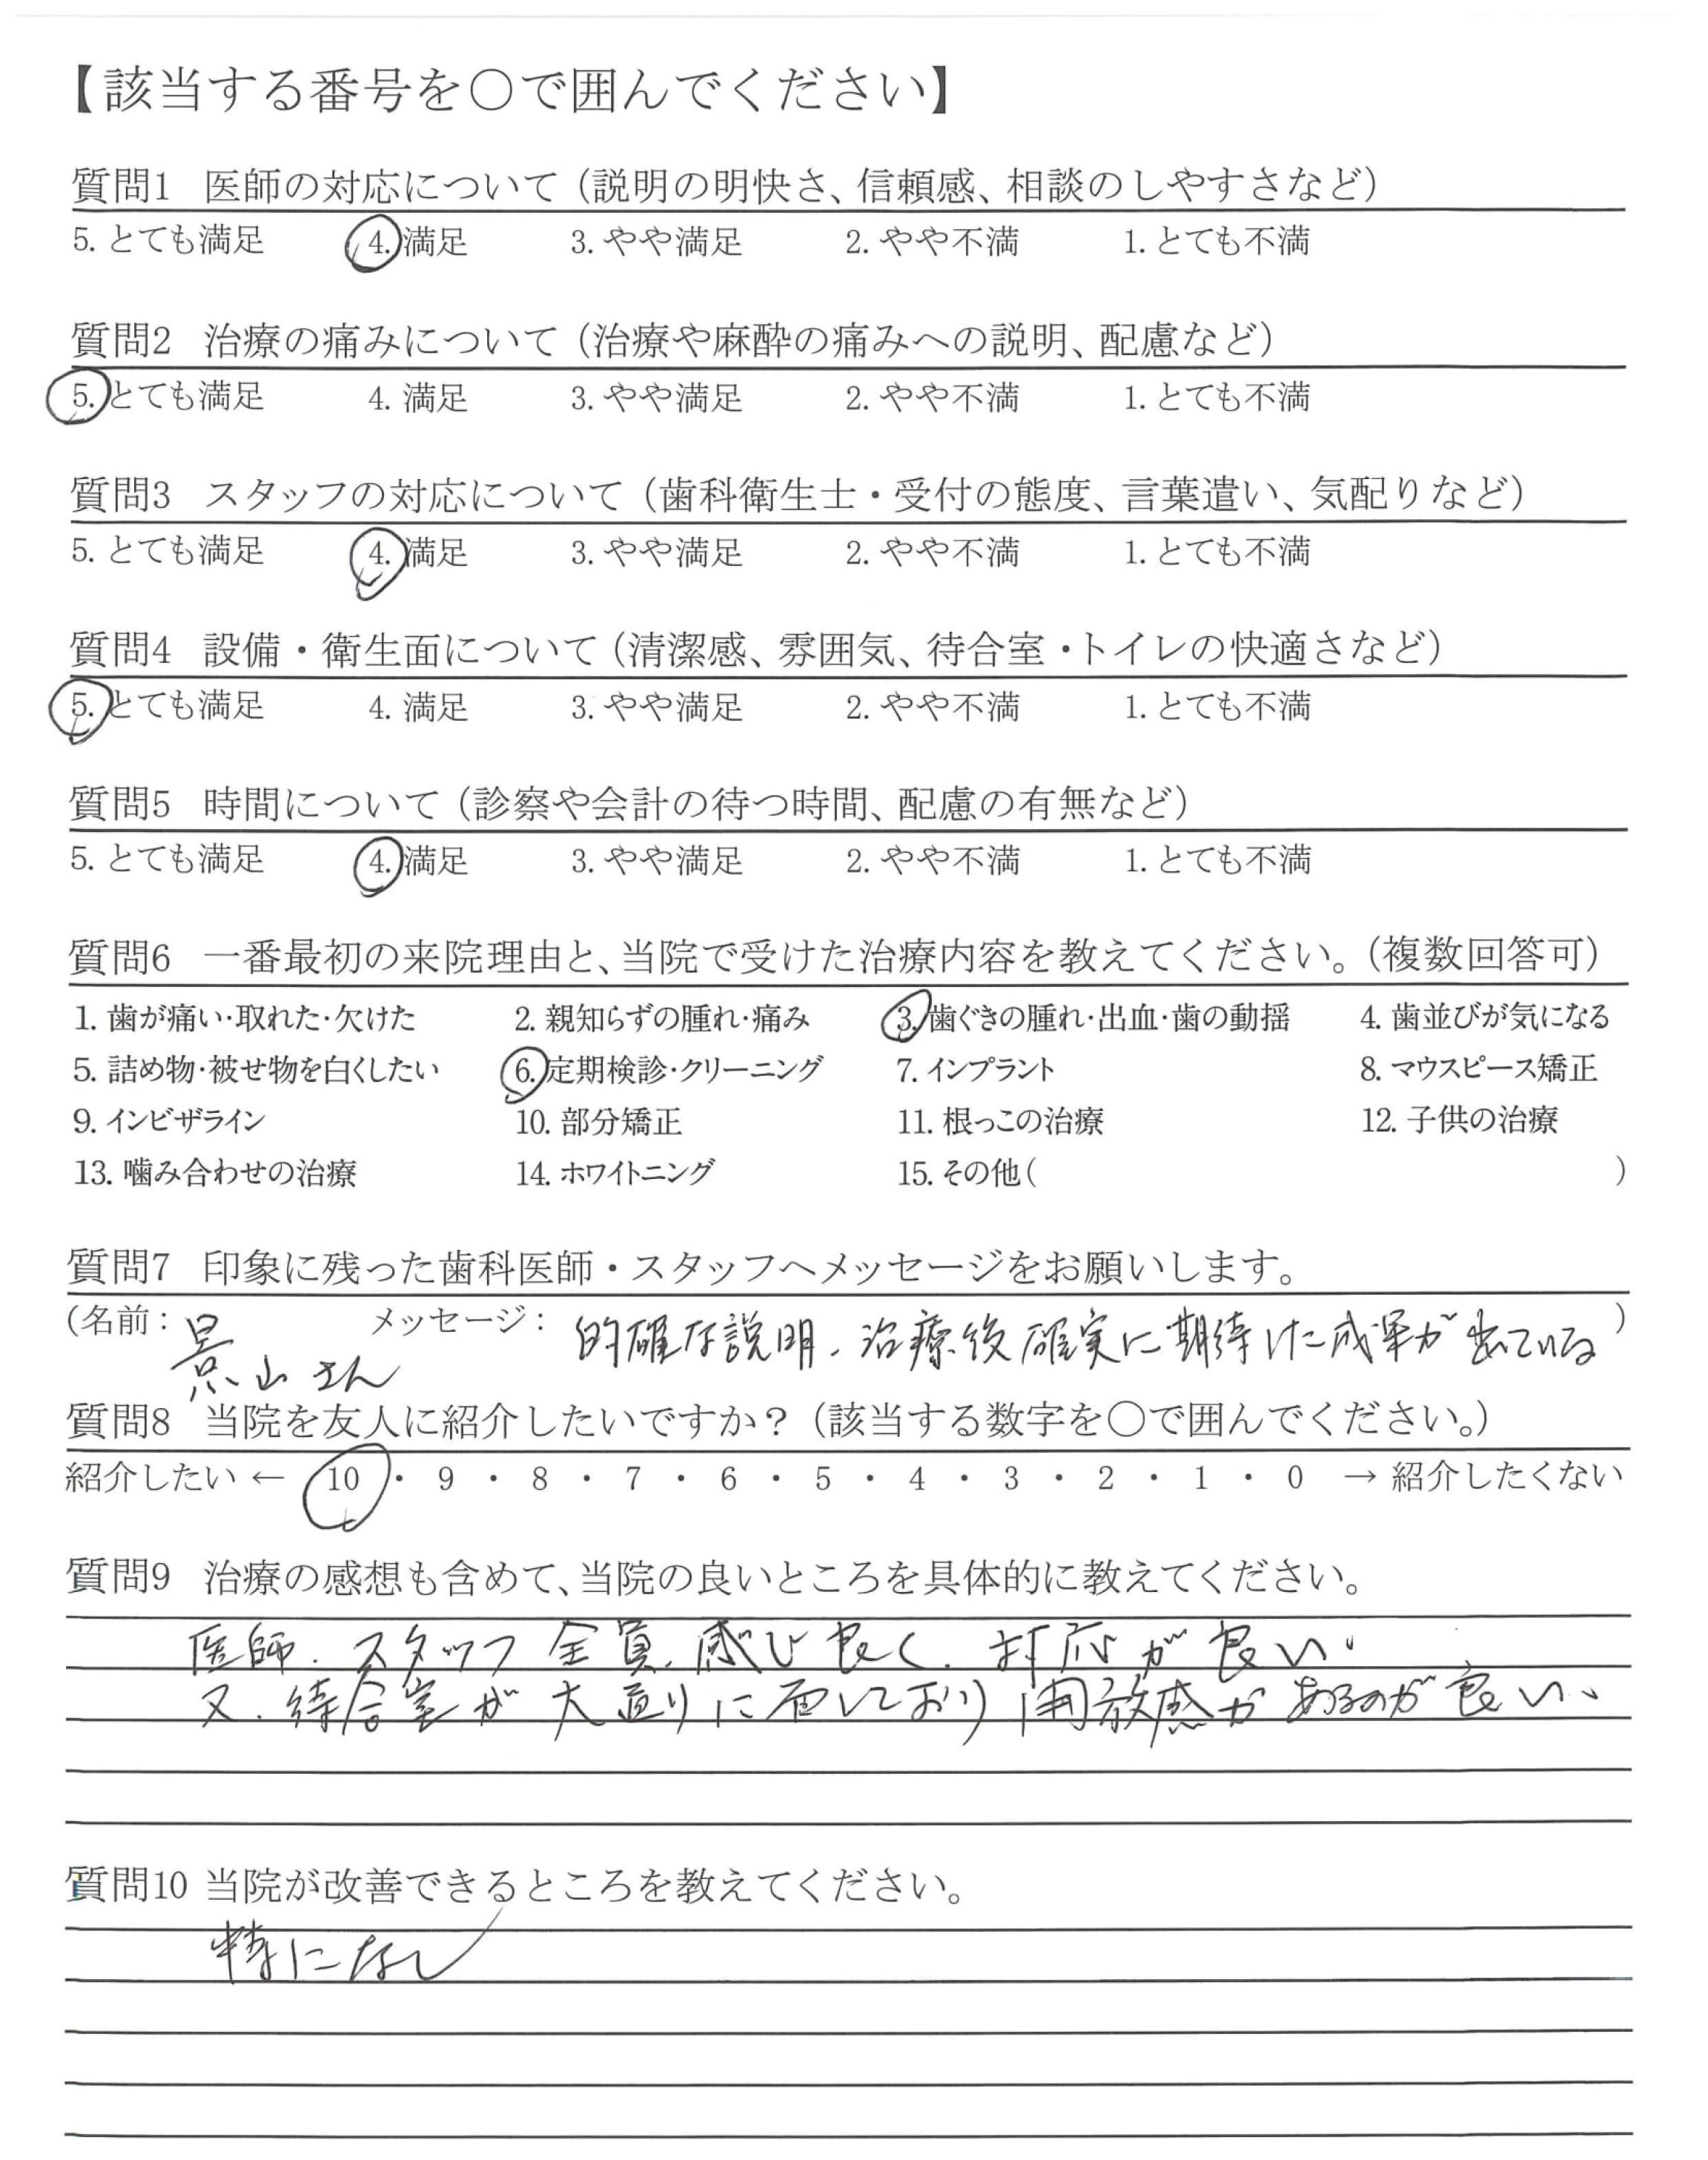 【該当する番号を○で囲んでください】
質問1 医師の対応について（説明の明快さ、信頼感、相談のしやすさなど）
5. とても満足 4. 満足 3. やや満足 2. やや不満 1. とても不満
質問2 治療の痛みについて（治療や麻酔の痛みへの説明、配慮など）
5. とても満足 4. 満足 3. やや満足 2. やや不満 1. とても不満
質問3 スタッフの対応について（歯科衛生士・受付の態度、言葉遣い、気配りなど）
5. とても満足 4. 満足 3. やや満足 2. やや不満 1. とても不満
質問4 設備・衛生面について（清潔感、雰囲気、待合室・トイレの快適さなど）
5. とても満足 4. 満足 3. やや満足 2. やや不満 1. とても不満
質問5 時間について（診察や会計の待つ時間、配慮の有無など）
5. とても満足 4. 満足 3. やや満足 2. やや不満 1. とても不満
質問6 一番最初の来院理由と、当院で受けた治療内容を教えてください。（複数回答可）
1. 歯が痛い・取れた・欠けた 2. 親知らずの腫れ・痛み 3. 歯ぐきの腫れ・出血・歯の動揺 4. 歯並びが気になる
5. 詰め物・被せ物を白くしたい 6. 定期検診・クリーニング 7. インプラント 8. マウスピース矯正
9. インビザライン 10. 部分矯正 11. 根っこの治療 12. 子供の治療
13. 噛み合わせの治療 14. ホワイトニング 15. その他（ ）
質問7 印象に残った歯科医師・スタッフへメッセージをお願いします。
（名前：景山さん メッセージ：的確な説明、治療後確実に期待した成果が出ている）
質問8 当院を友人に紹介したいですか？（該当する数字を○で囲んでください。）
紹介したい ← 10 ・ 9 ・ 8 ・ 7 ・ 6 ・ 5 ・ 4 ・ 3 ・ 2 ・ 1 ・ 0 → 紹介したくない
質問9 治療の感想も含めて、当院の良いところを具体的に教えてください。
医師、スタッフ全員、感じ良く、対応が良い。
又、待合室が大通りに面しており開放感があるのが良い、
質問10 当院が改善できるところを教えてください。
特になし